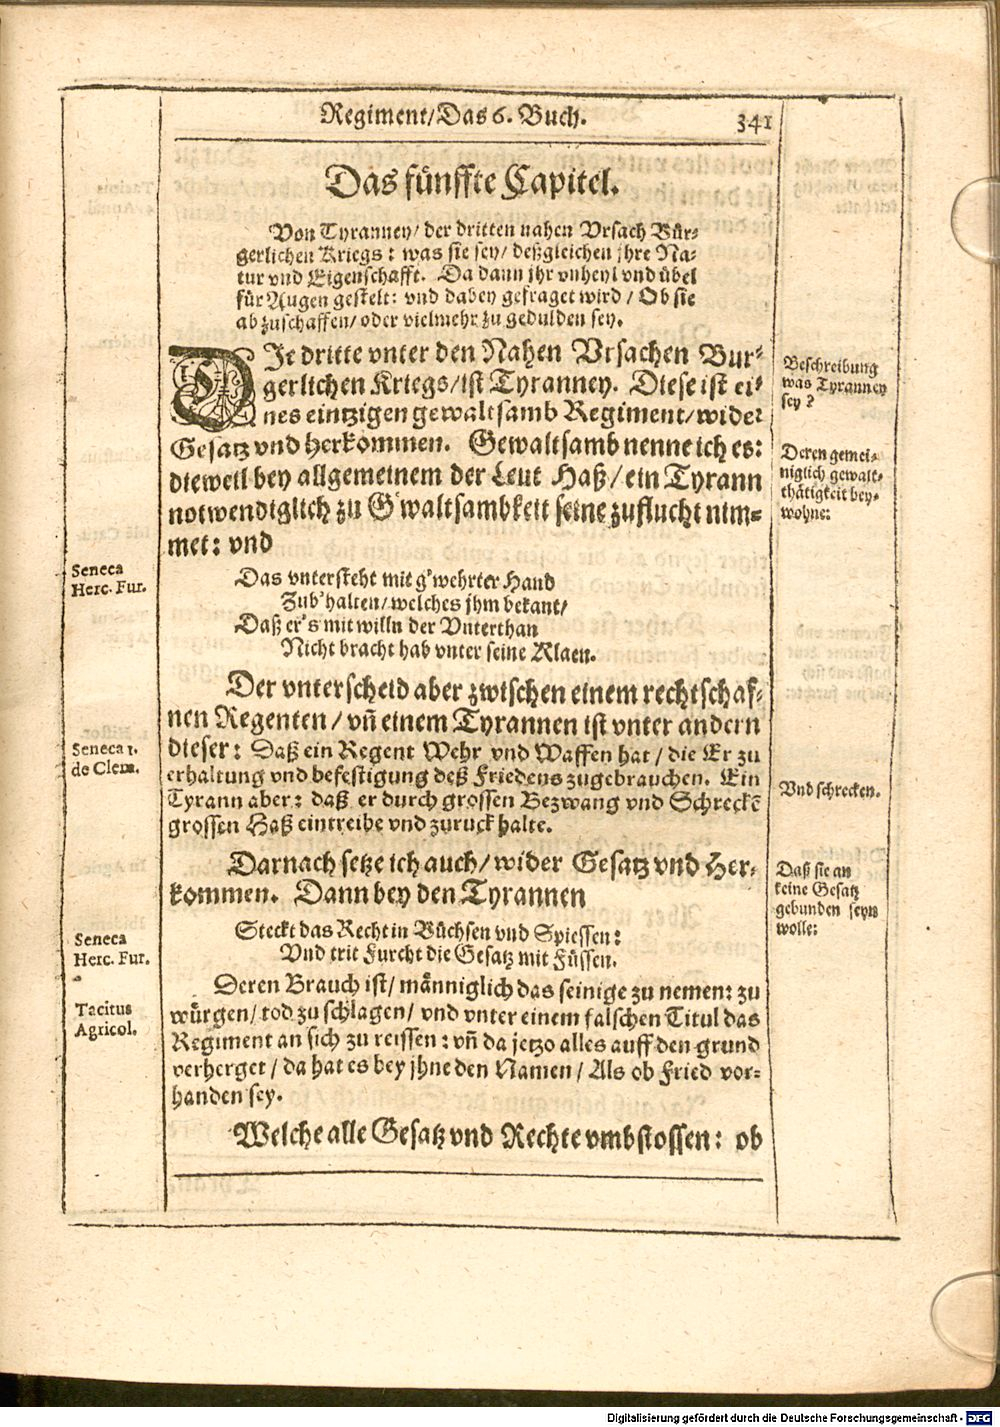 Regiment/Das 6. Buch. 341
Das fünffte Capitel.
Von Tyranney/ der dritten nahen Vrsach Bür-
gerlichen Kriegs: was sie sey/ deßgleichen jhre Na-
tur vnd Eigenschafft. Da dann jhr vnheyl vnd übel
für Augen gestelt: vnd dabey gefraget wird/ Ob sie
ab zuschaffen/ oder vielmehr zu gedulden sey.
DJe dritte vnter den Nahen Vrsachen Bur-
gerlichen Kriegs/ist Tyranney. Diese ist ei-
nes eintzigen gewaltsamb Regiment/wider
Gesatz vnd herkommen. Gewaltsamb nenne ich es:
dieweil bey allgemeinem der Leut Haß/ein Tyrann
notwendiglich zu G'waltsambkeit seine zuflucht nim-
met: vnd
Das vntersteht mit g'wehrter Hand
Zub'halten/welches jhm bekant/
Daß er's mit willn der Vnterthan
Nicht bracht hab vnter seine Klaen.
Der vnterscheid aber zwischen einem rechtschaf-
nen Regenten/vñ einem Tyrannen ist vnter andern
dieser: Daß ein Regent Wehr vnd Waffen hat/die Er zu
erhaltung vnd befestigung deß Friedens zugebrauchen. Ein
Tyrann aber: daß er durch grossen Bezwang vnd Schreckē
grossen Haß eintreibe vnd zuruck halte.
Darnach setze ich auch/wider Gesatz vnd Her-
kommen. Dann bey den Tyrannen
Steckt das Recht in Büchsen vnd Spiessen:
Vnd trit Furcht die Gesatz mit Füssen.
Deren Brauch ist/männiglich das seinige zu nemen: zu
würgen/tod zu schlagen/vnd vnter einem falschen Titul das
Regiment an sich zu reissen: vñ da jetzo alles auff den grund
verherget/da hat es bey jhne den Namen/Als ob Fried vor-
handen sey.
Welche alle Gesatz vnd Rechte vmbstossen: ob
Seneca
Herc. Fur.
Seneca 1.
de Clem.
Seneca
Herc. Fur.
Tacitus
Agricol.
Beschreibung
was Tyranney
sey?
Deren gemei-
niglich gewalt-
thätigkeit bey-
wohne:
Vnd schrecken.
Daß sie an
keine Gesatz
gebunden seyn
wolle:
Digitalisierung gefördert durch die Deutsche Forschungsgemeinschaft - DFG